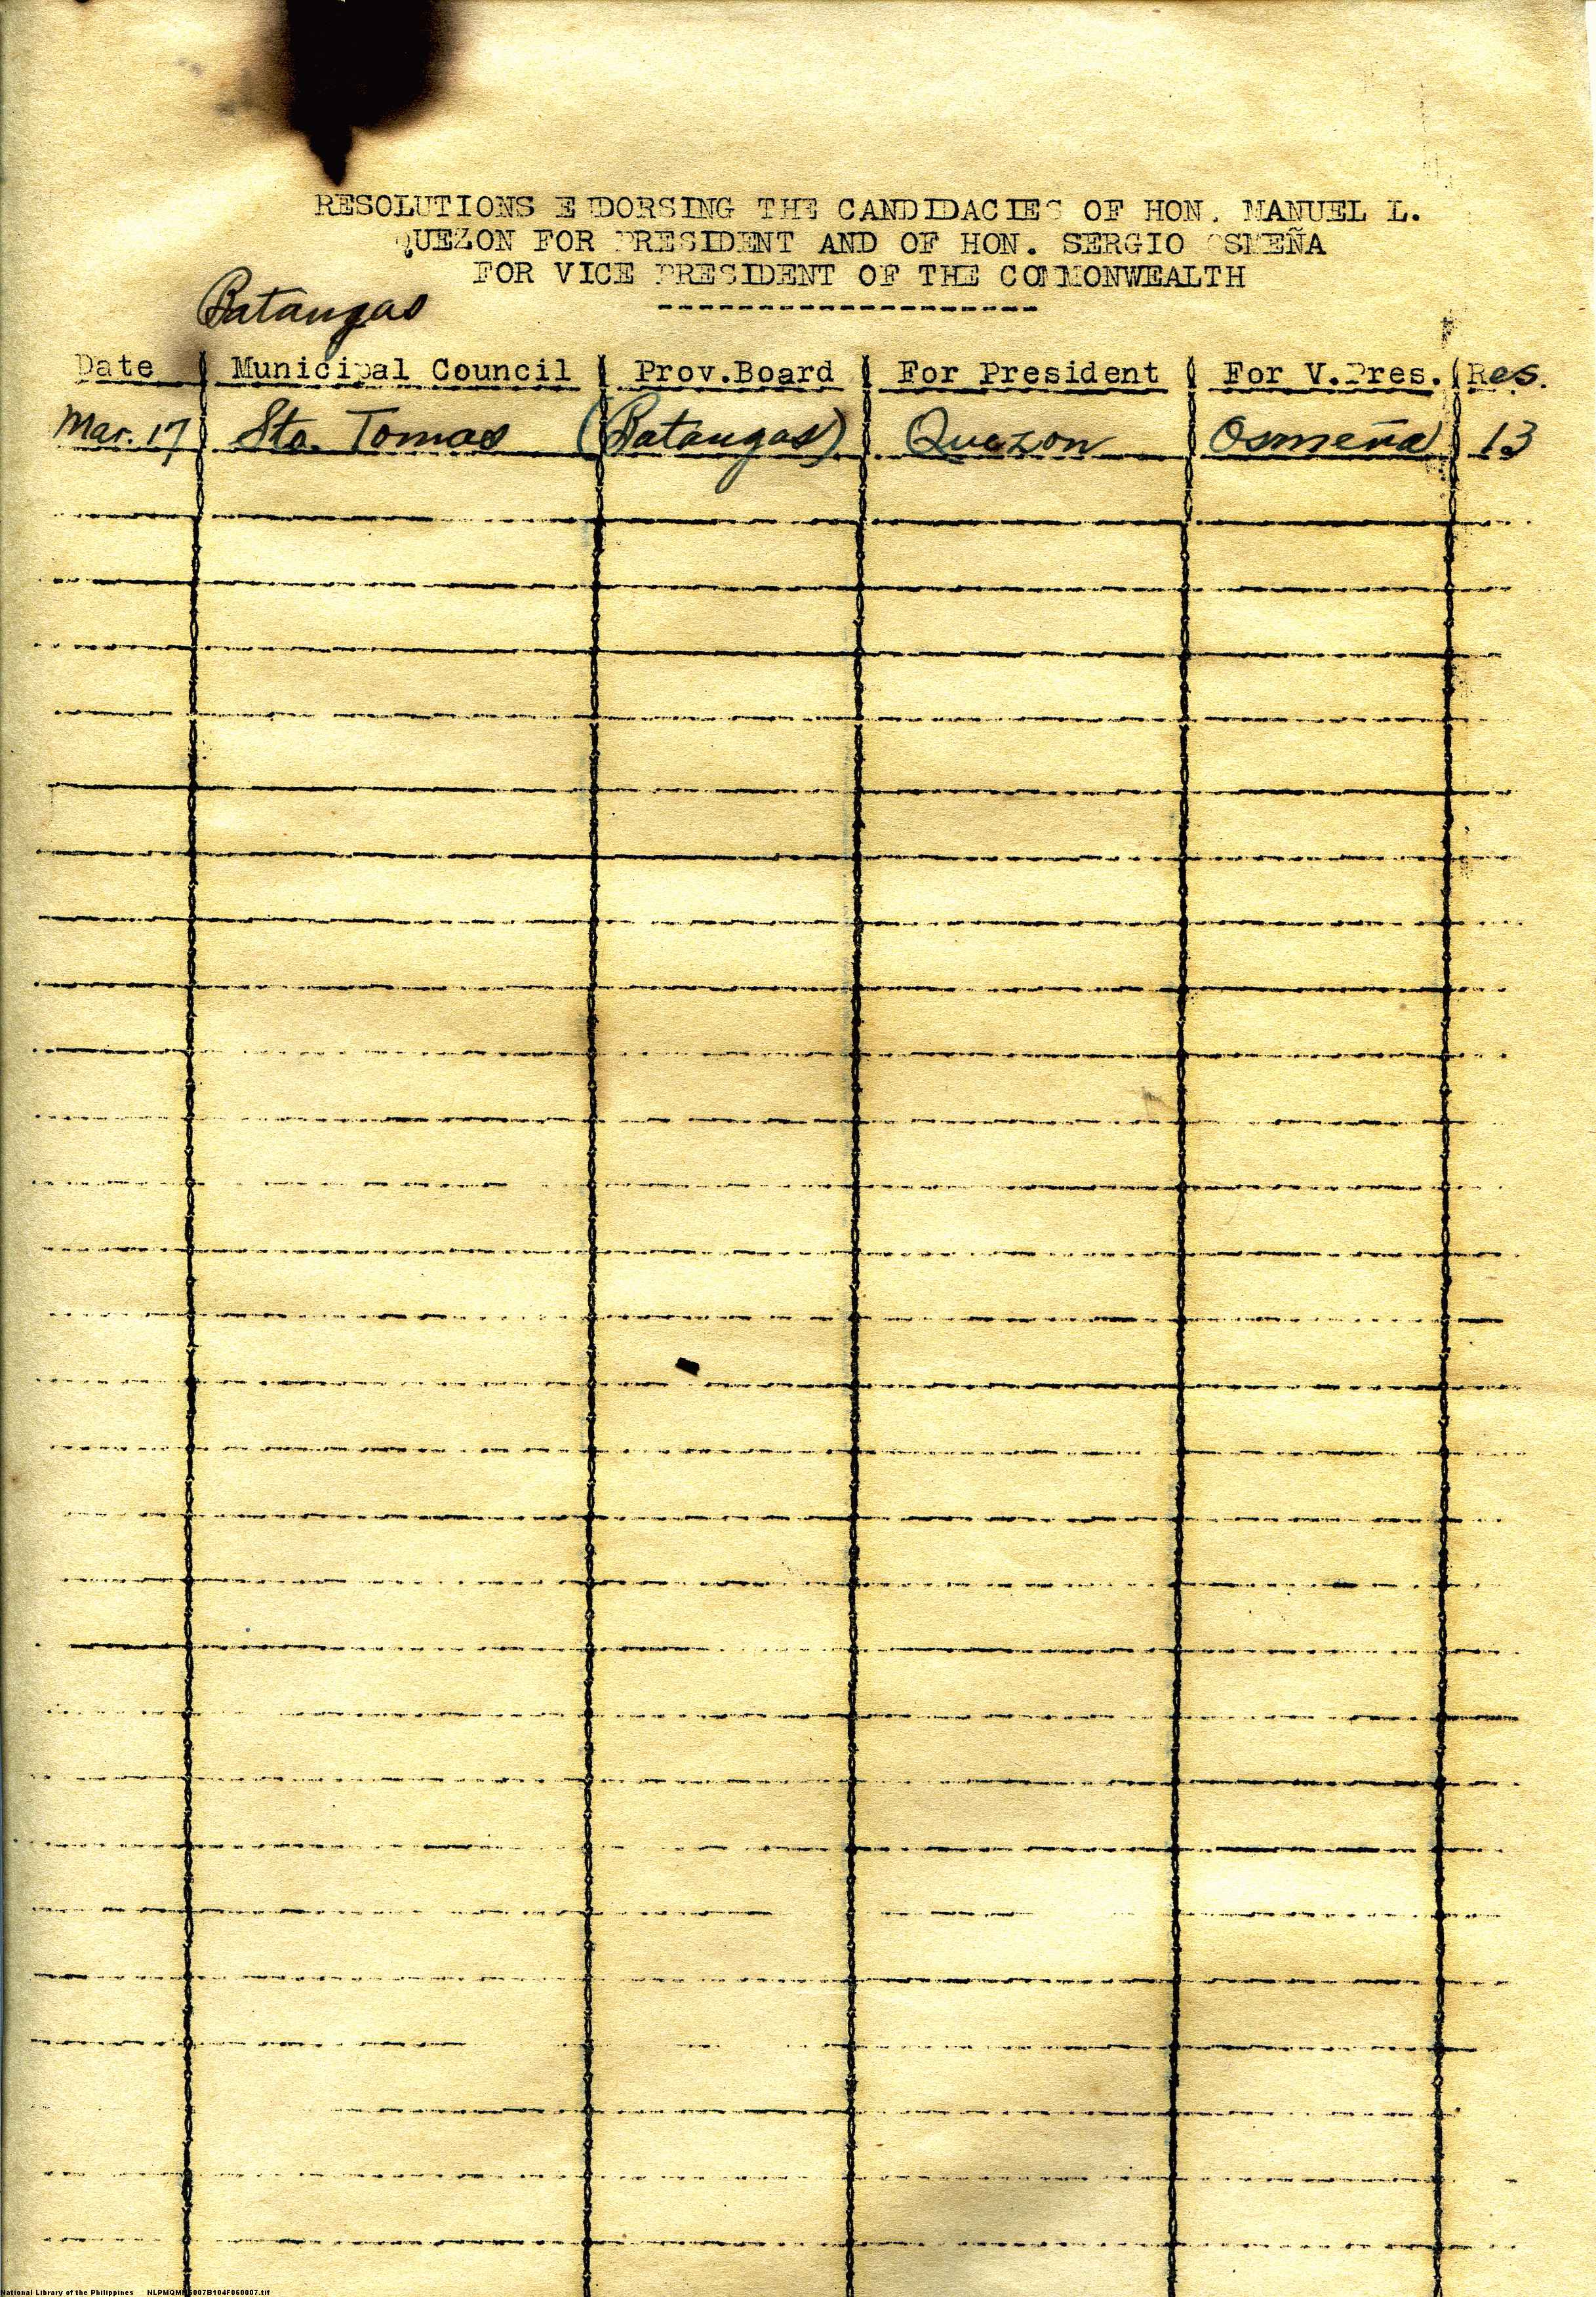 RESOLUTIONS ENDORSING THE CANDIDACIES OF HON. MANUEL L.
QUEZON FOR PRESIDENT AND OF HON. SERGIO OSMEÑA
FOR VICE PRESIDENT OF THE COMMONWEALTH
Batangas
Date Municipal Council Prov.Board For President For V.Pres. Res.
Mar. 17 Sto. Tomas (Batangas) Quezon Osmeña 13
National Library of the Philippines